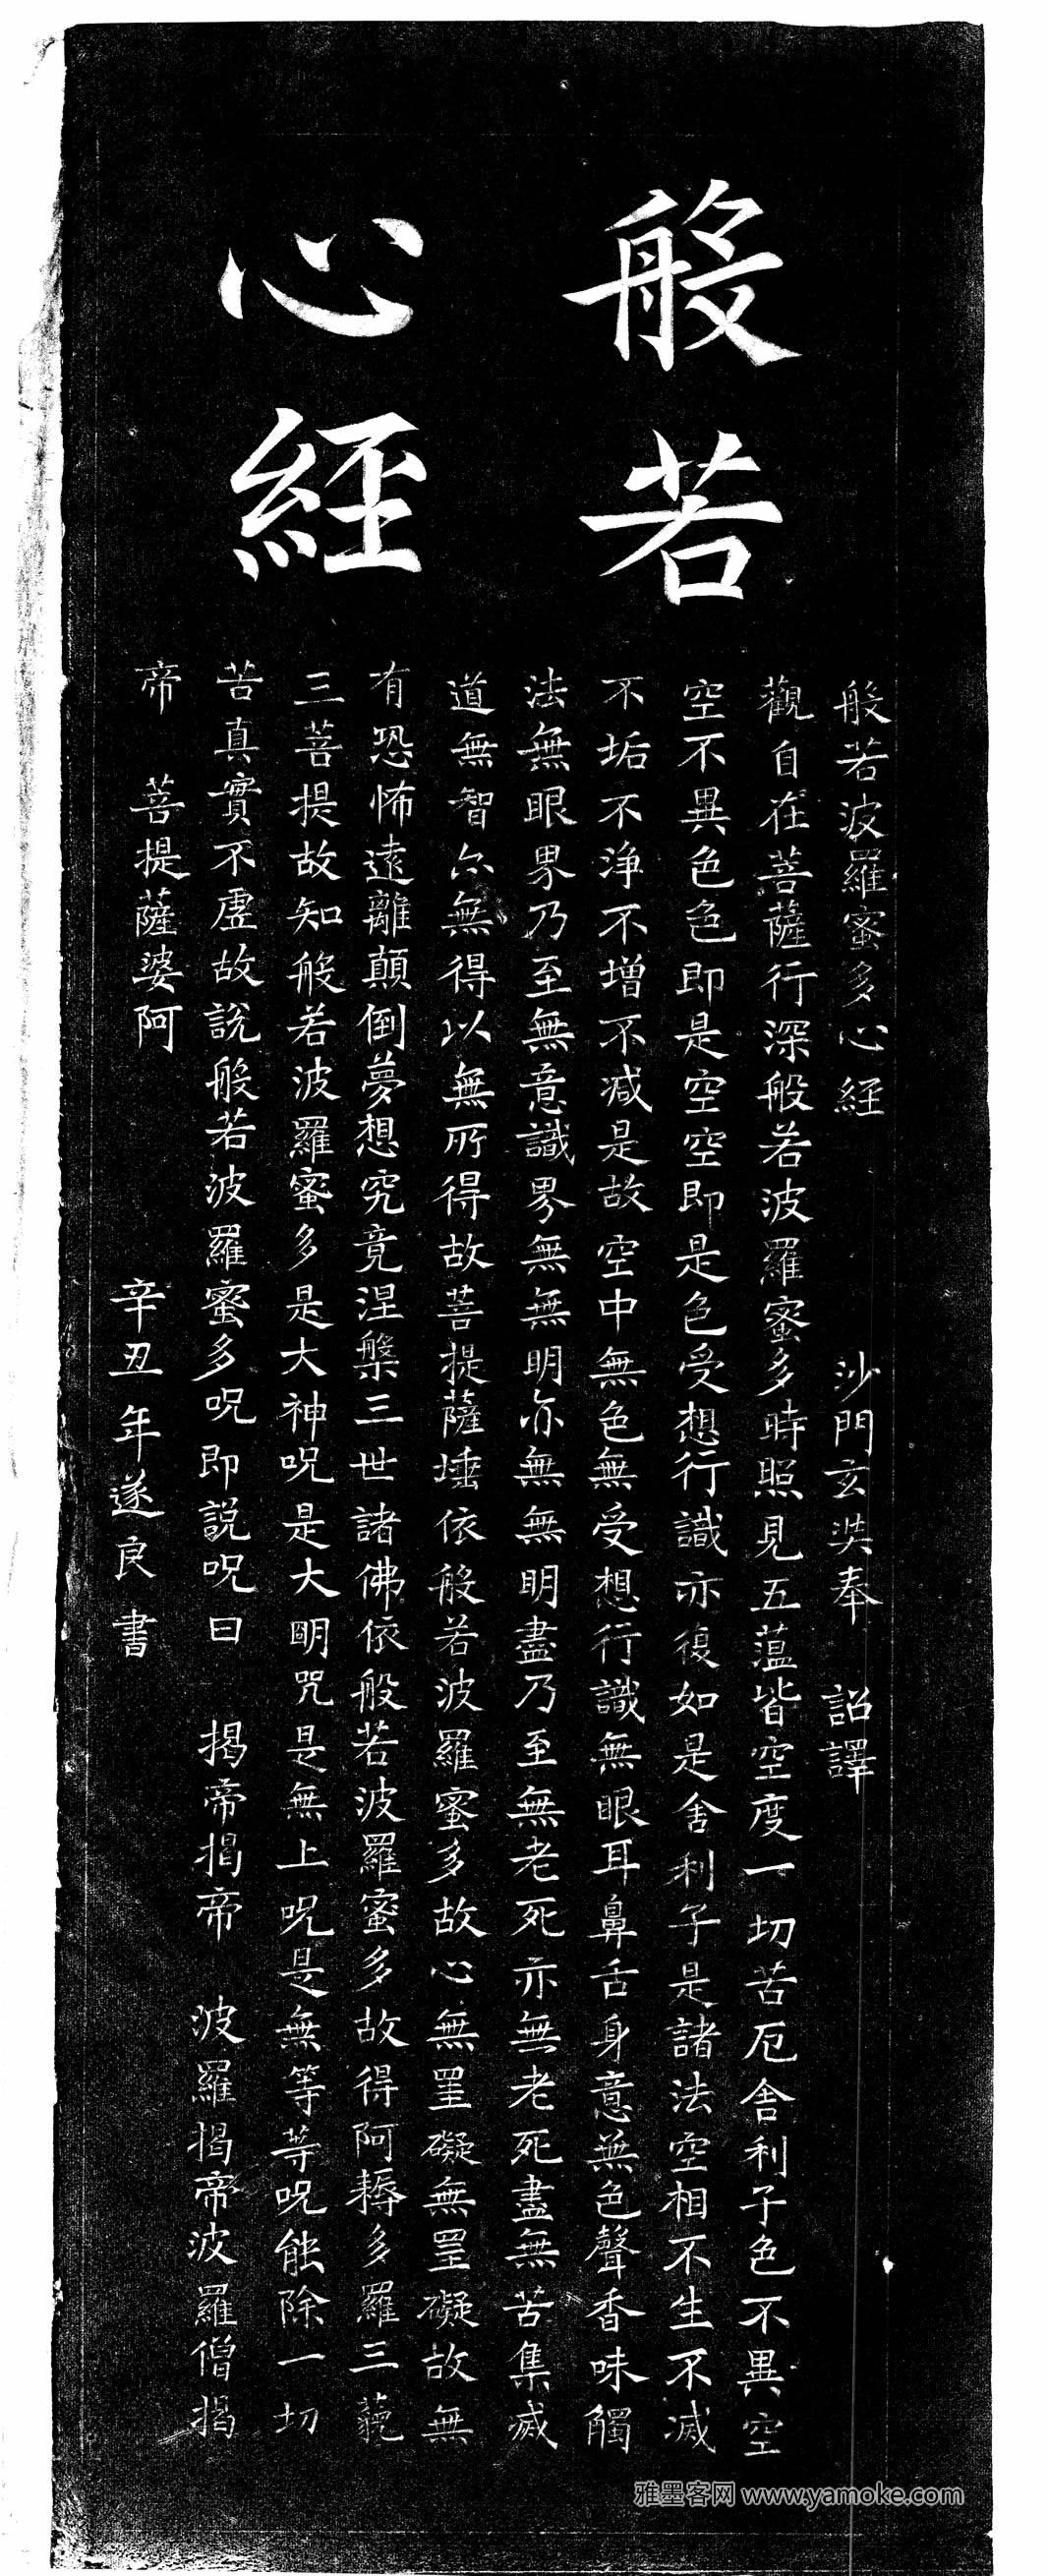 般若
心經
般若波羅蜜多心經 沙門玄奘奉 詔譯
觀自在菩薩行深般若波羅蜜多時照見五蘊皆空度一切苦厄舍利子色不異空
空不異色色即是空空即是色受想行識亦復如是舍利子是諸法空相不生不滅
不垢不淨不增不減是故空中無色無受想行識無眼耳鼻舌身意無色聲香味觸
法無眼界乃至無意識界無無明亦無無明盡乃至無老死亦無老死盡無苦集滅
道無智亦無得以無所得故菩提薩埵依般若波羅蜜多故心無罣礙無罣礙故無
有恐怖遠離顛倒夢想究竟涅槃三世諸佛依般若波羅蜜多故得阿耨多羅三藐
三菩提故知般若波羅蜜多是大神呪是大明咒是無上呪是無等等呪能除一切
苦真實不虛故說般若波羅蜜多呪即説呪曰 揭帝揭帝 波羅揭帝波羅僧揭
帝 菩提薩婆阿
辛丑年遂良書
雅墨客网 www.yamoke.com